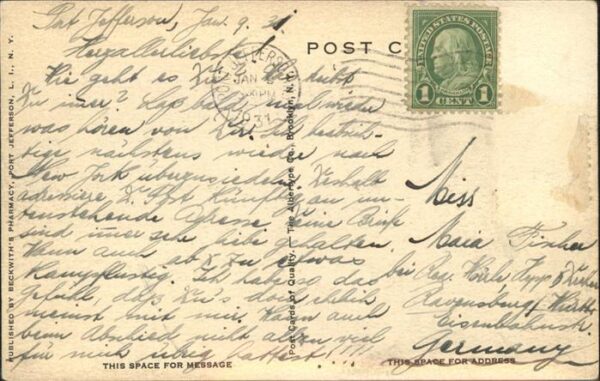 Port Jefferson, Jan. 9. 31.
Herzallerliebste!
Wie geht es Dir? Wo bleibst
Du immer? Lass bald mal wieder
was hören von Dir. Ich beabsich-
tige nächstens wieder nach
New York überzusiedeln. Deshalb
adressiere D. Post künftig an un-
tenstehende Adresse. Deine Briefe
sind immer sehr lieb gehalten.
Wenn auch ab & zu etwas
kampflustig. Ich habe so das
Gefühl, dass Du's doch ehrlich
meinst mit mir. Wenn auch
beim Abschied nicht allzu viel
für mich übrig hattest!!!
POST C
UNITED STATES POSTAGE
1 CENT 1
JEFFERSON
JAN
1931
N.Y.
Miss
Maria Fischer
bei Reg.
Ravensburg / Württ.
Eisenbahnstr.
Germany
PUBLISHED BY BECKWITH'S PHARMACY, PORT JEFFERSON, L. I., N. Y.
Post Cards of Quality. — The Albertype Co., Brooklyn, N. Y.
THIS SPACE FOR MESSAGE
THIS SPACE FOR ADDRESS